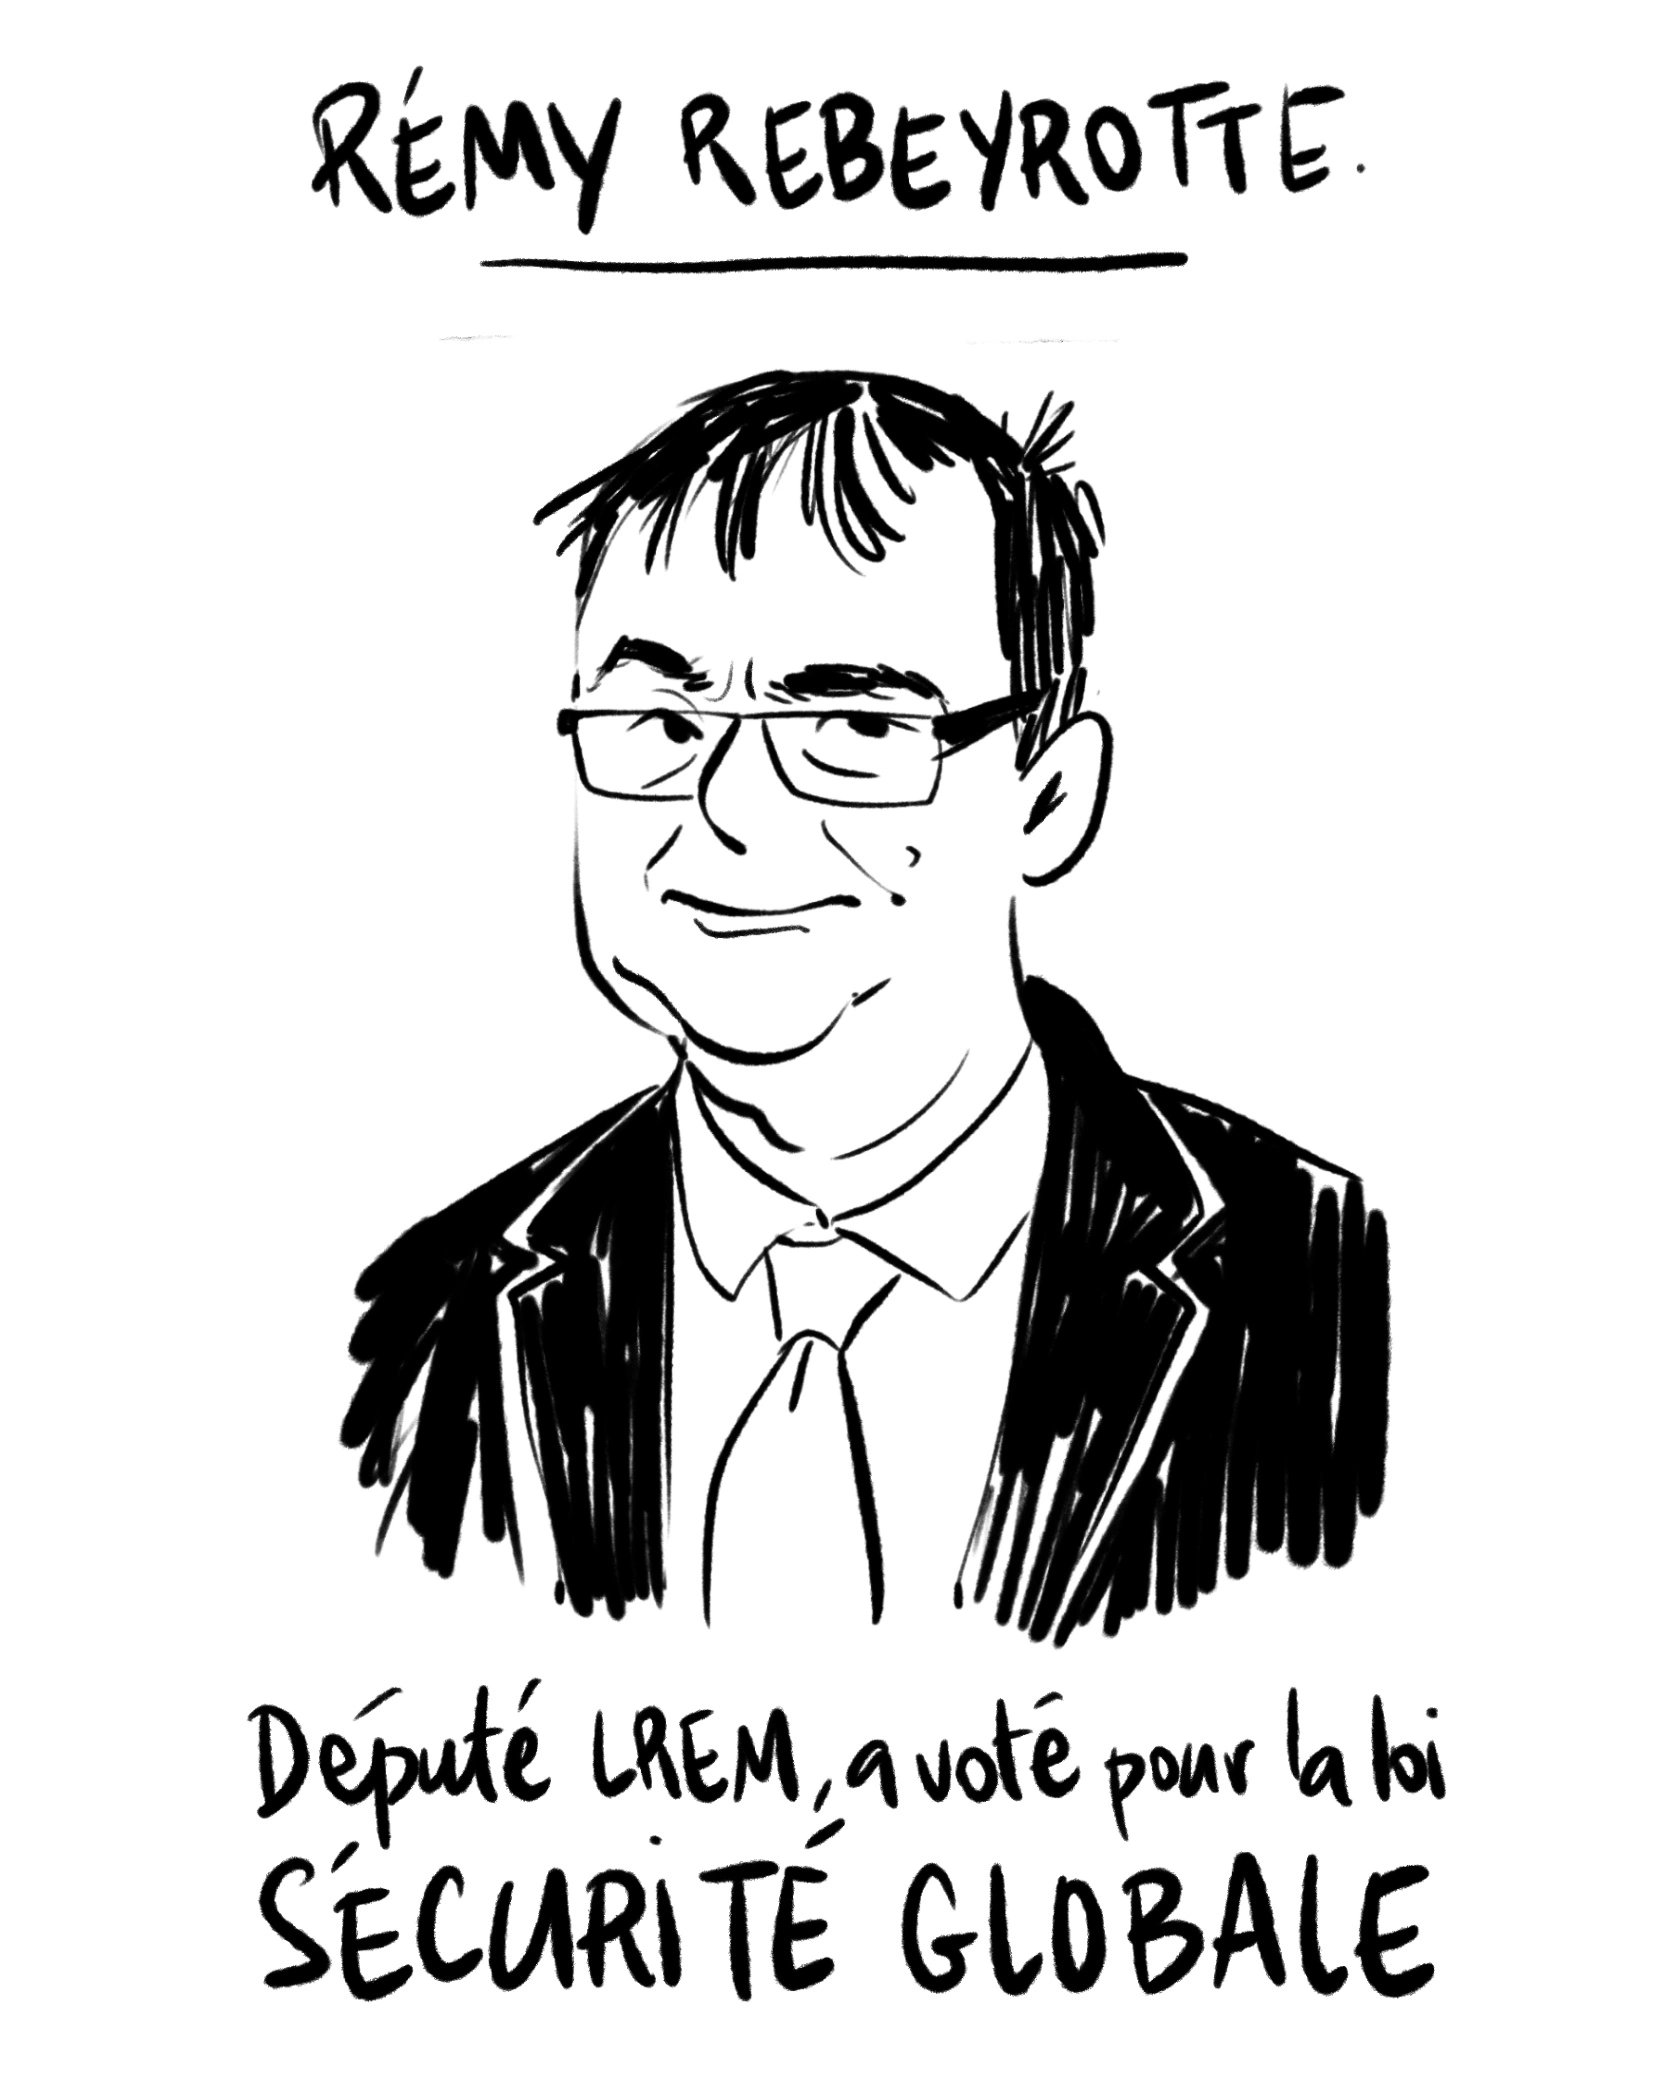 RÉMY REBEYROTTE.
Député LREM, a voté pour la loi
SÉCURITÉ GLOBALE